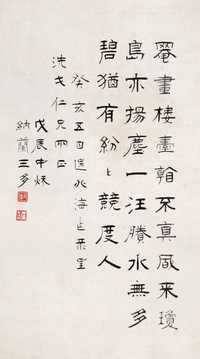 罨畫樓臺看不真風來瓊
島亦揚塵一汪賸水無多
碧猶有紛〻競度人
癸亥五日遊北海即景呈
洗戈仁兄正
戊辰中秋
納蘭三多